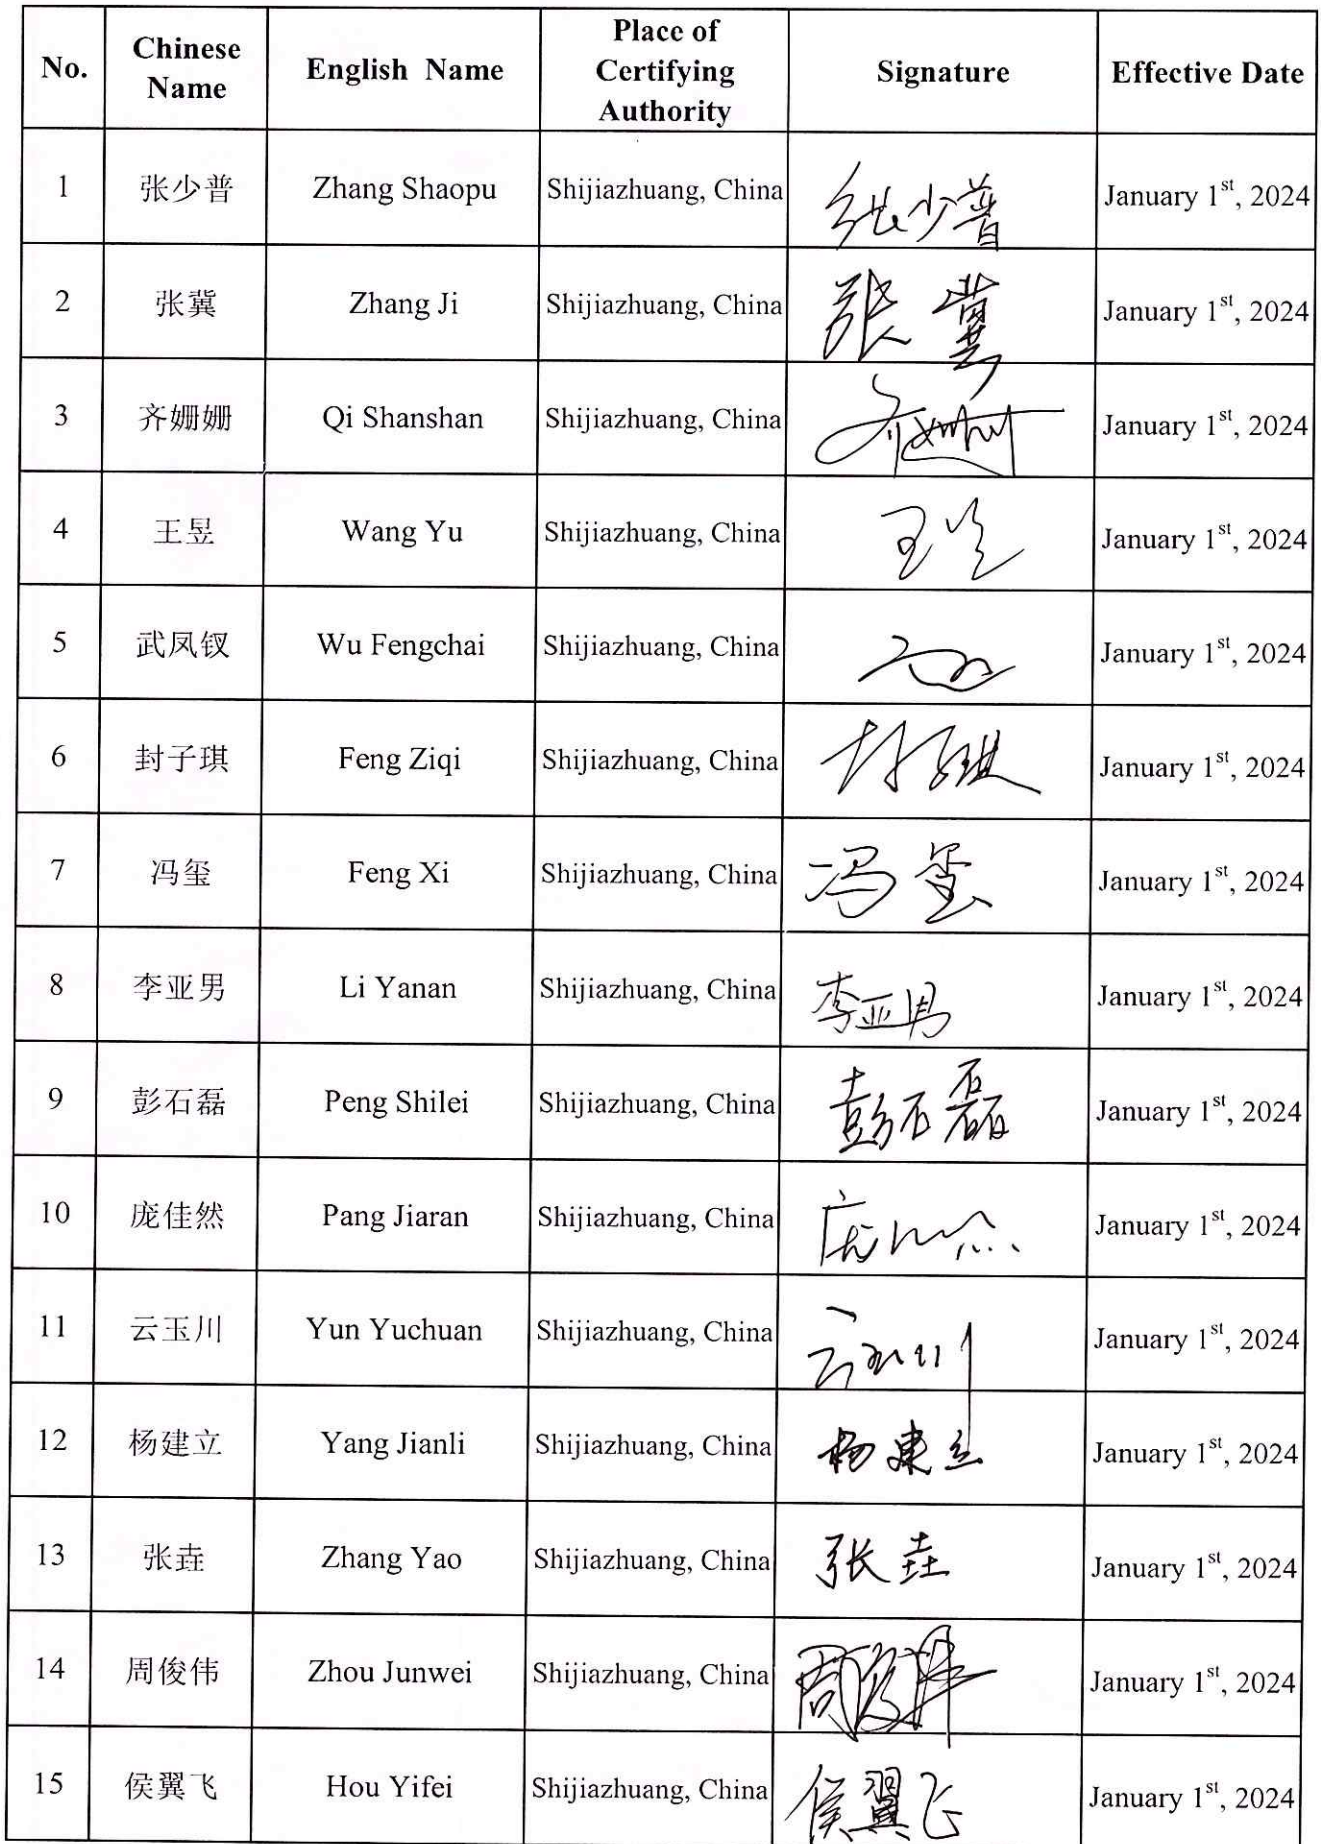 No. Chinese Name English Name Place of Certifying Authority Signature Effective Date
1 张少普 Zhang Shaopu Shijiazhuang, China 张少普 January 1st, 2024
2 张冀 Zhang Ji Shijiazhuang, China 张冀 January 1st, 2024
3 齐姗姗 Qi Shanshan Shijiazhuang, China January 1st, 2024
4 王昱 Wang Yu Shijiazhuang, China January 1st, 2024
5 武凤钗 Wu Fengchai Shijiazhuang, China January 1st, 2024
6 封子琪 Feng Ziqi Shijiazhuang, China 封子琪 January 1st, 2024
7 冯玺 Feng Xi Shijiazhuang, China 冯玺 January 1st, 2024
8 李亚男 Li Yanan Shijiazhuang, China 李亚男 January 1st, 2024
9 彭石磊 Peng Shilei Shijiazhuang, China 彭石磊 January 1st, 2024
10 庞佳然 Pang Jiaran Shijiazhuang, China January 1st, 2024
11 云玉川 Yun Yuchuan Shijiazhuang, China 云玉川 January 1st, 2024
12 杨建立 Yang Jianli Shijiazhuang, China 杨建立 January 1st, 2024
13 张垚 Zhang Yao Shijiazhuang, China 张垚 January 1st, 2024
14 周俊伟 Zhou Junwei Shijiazhuang, China 周俊伟 January 1st, 2024
15 侯翼飞 Hou Yifei Shijiazhuang, China 侯翼飞 January 1st, 2024